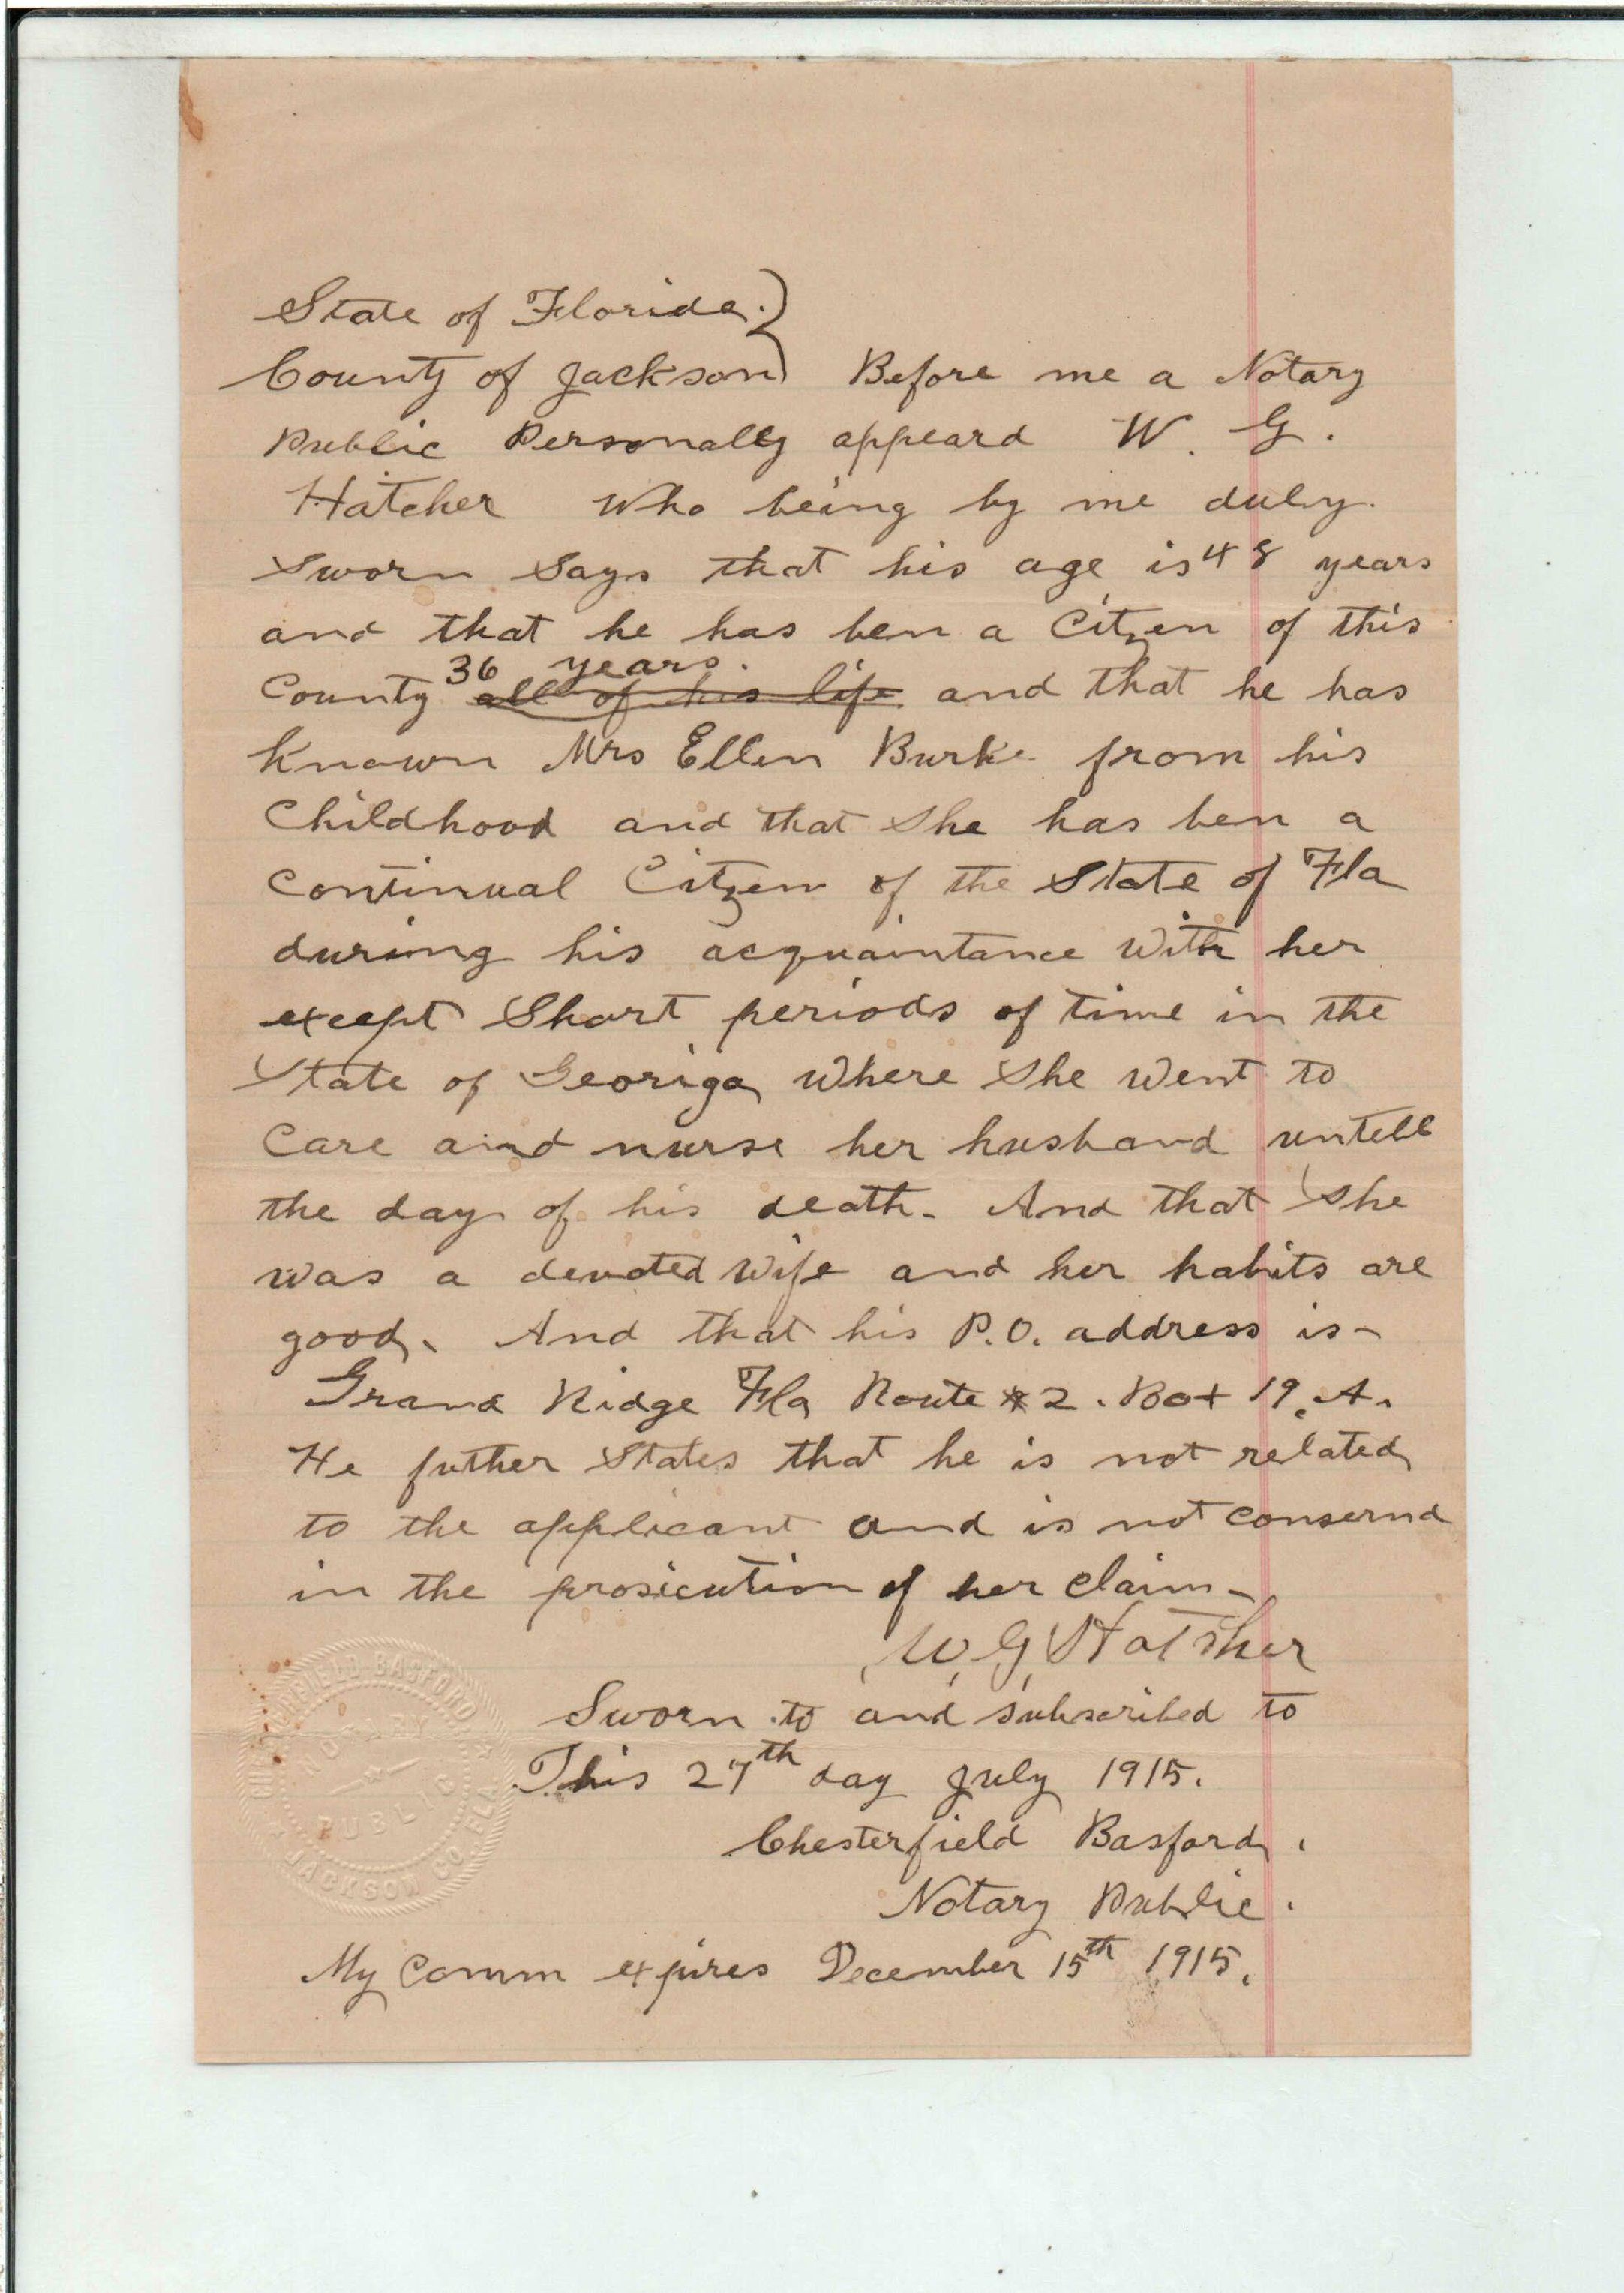 State of Florida.)
County of Jackson) Before me a Notary
Public Personally appeard W. G.
Hatcher Who being by me duly.
Sworn Says that his age is 48 years
and that he has ben a Citzen of this
36 years.
County all of his life and that he has
Known Mrs Ellen Burke from his
Childhood and that She has ben a
Continual Citzen of the State of Fla
during his acquaintance With her
except Short periods of time in the
State of Georiga Where She Went to
Care and nurse her husband untell
the day of his death. And that She
was a devoted Wife and her habits are
good. And that his P.O. address is-
Grand Ridge Fla Route #2. Box 19.A.
He futher States that he is not related
to the applicant and is not Consernd
in the prosicution of her Claim-
W. G. Hatcher
Sworn to and subscribed to
This 27th day July 1915.
Chesterfield Basford.
Notary Public.
My Comm expires December 15th 1915.
CHESTERFIELD BASFORD
NOTARY
PUBLIC
JACKSON CO. FLA.